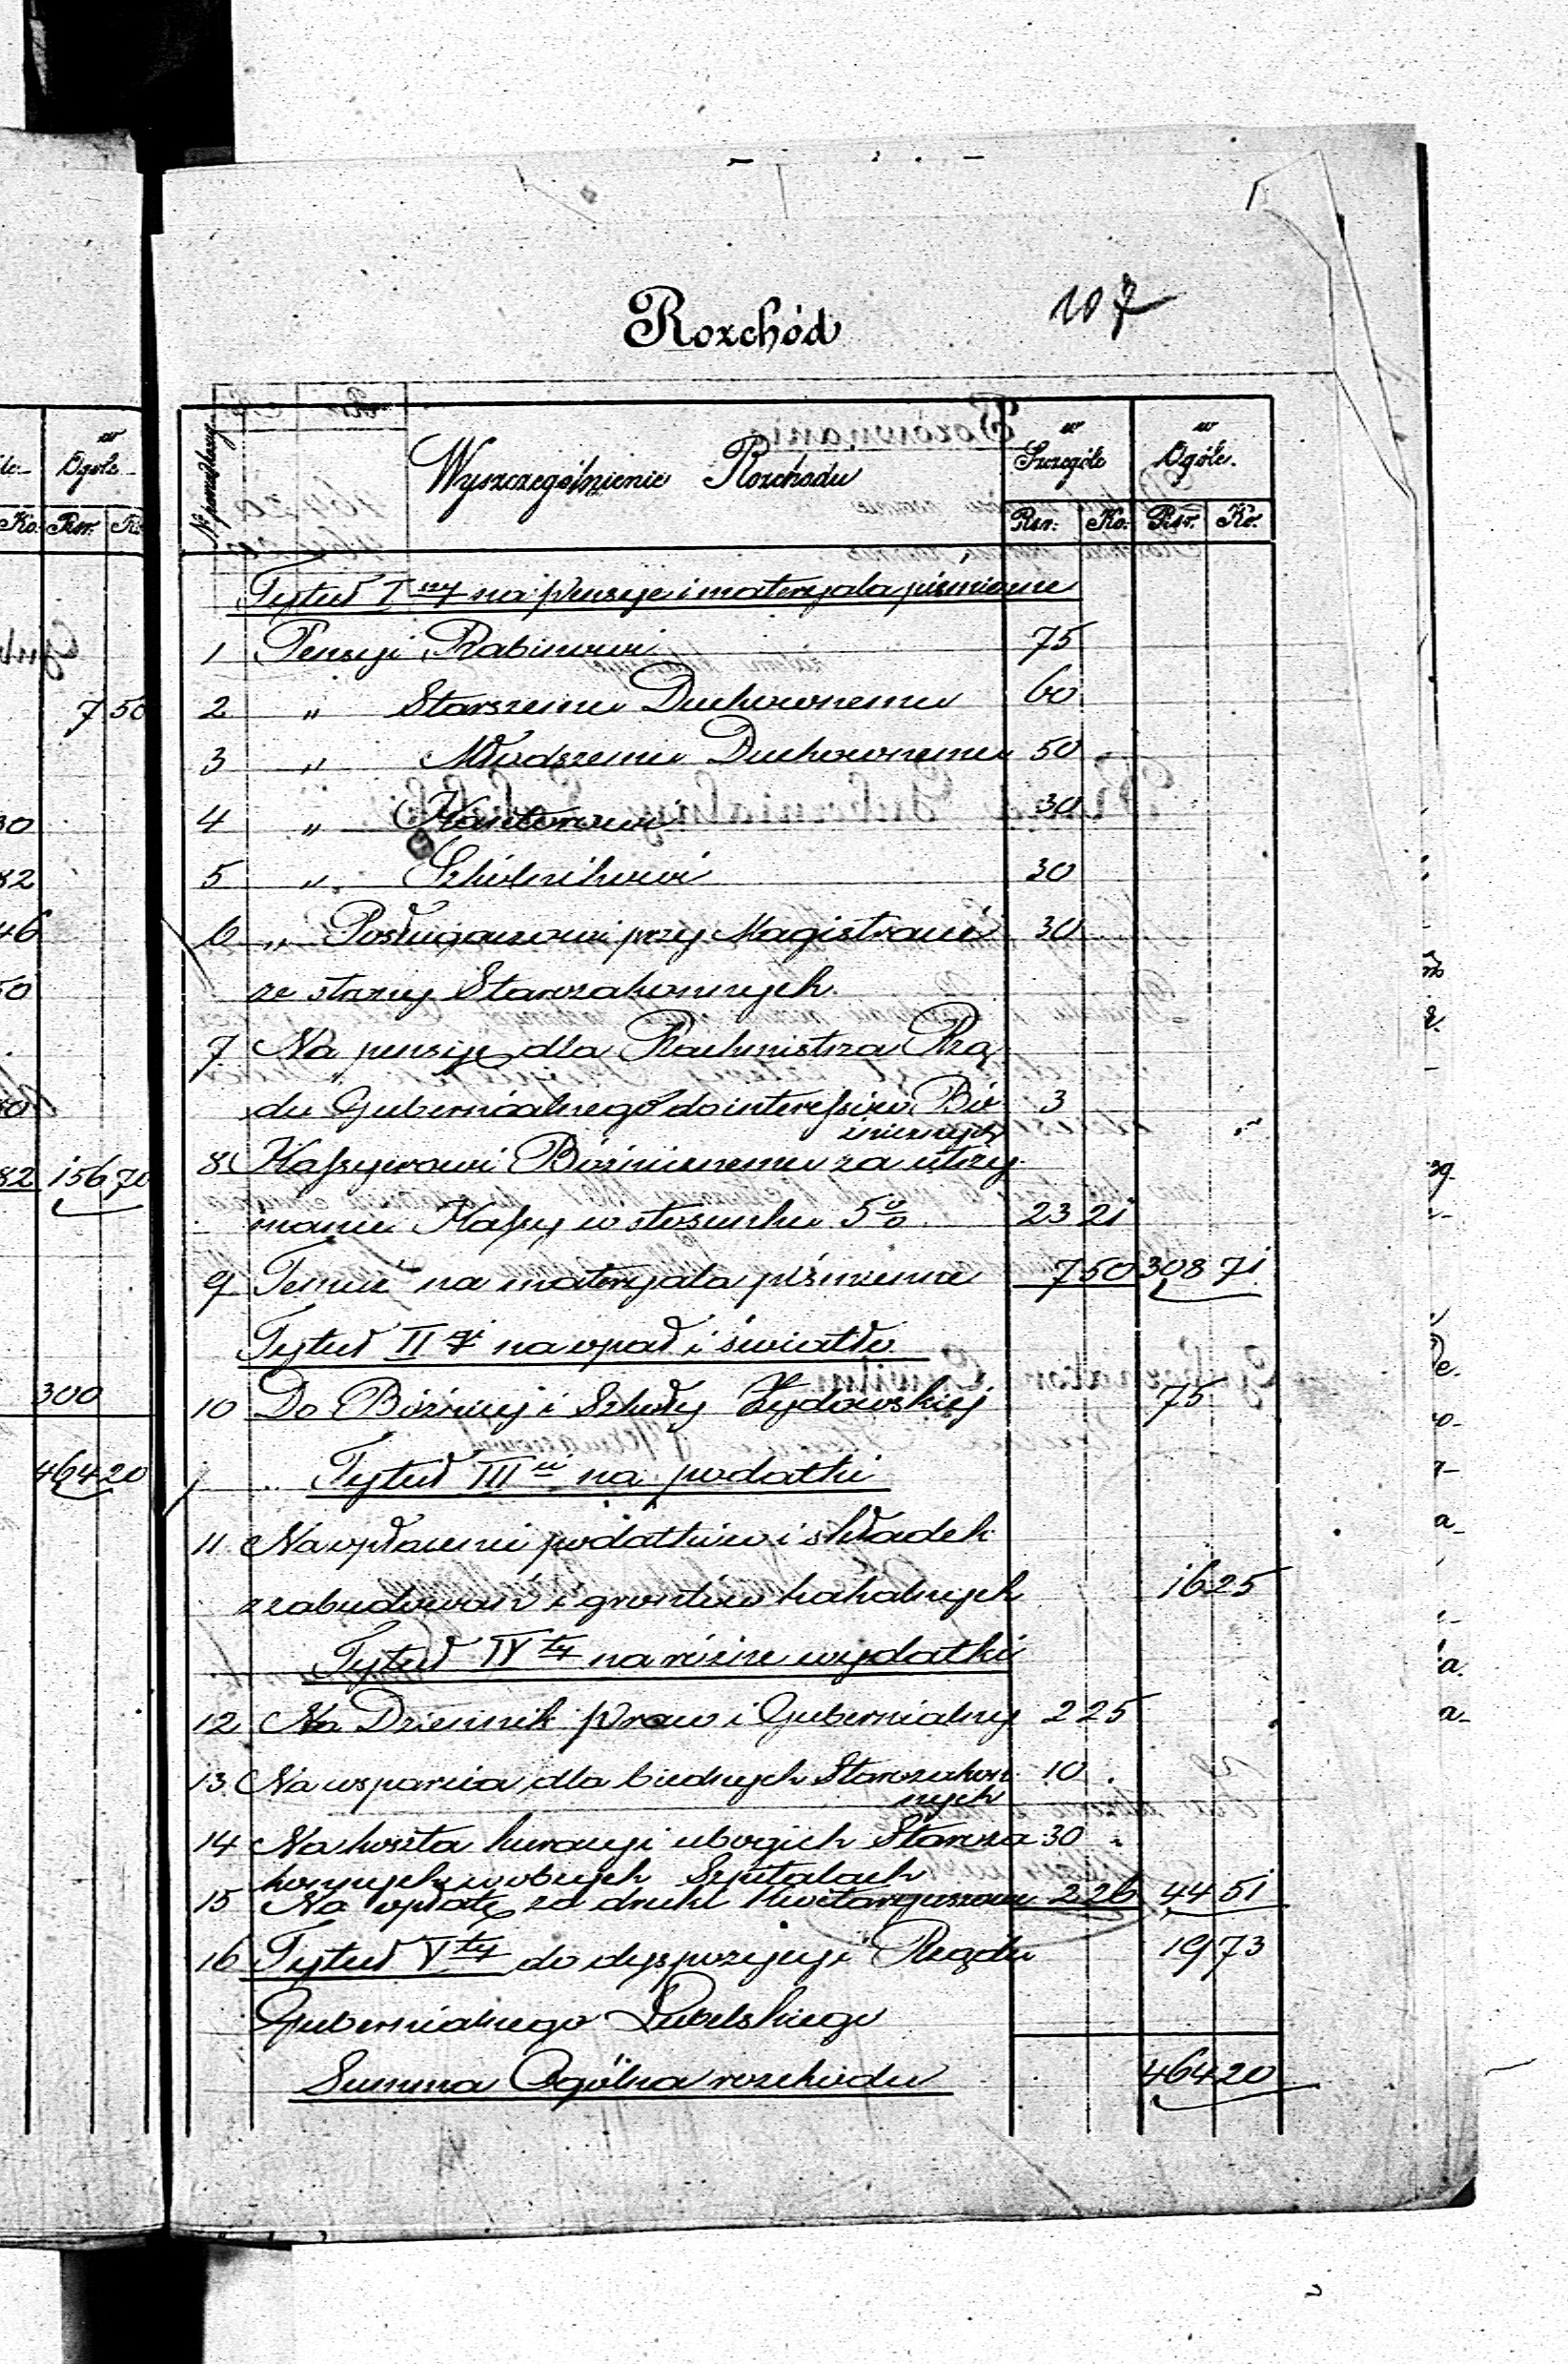 107
Rozchód
№ porządkowy
Wyszczególnienie Rozchodu
w Szczególe
w Ogóle.
Rsr. Ko. Rsr. Ko.
Tytuł I ny na pensye i materyała piśmienne
1 Pensyi Rabinowi 75
2 " Starszemu Duchownemu 60
3 " Młodszemu Duchownemu 50
4 " Kantorowi 30
5 " Szkolnikowi 30
6 " Posługaczowi przy Magistracie 30
ze strony Starozakonnych
7 Na pensyę dla Rachmistrza Rzą
du Gubernialnego do interessów Bó 3
żnicznych
8 Kassyerowi Bóżnicznemu za utrzy
manie Kassy w stosunku 5% 23 21
9 Temuż na materyała piśmienne 7 50 308 71
Tytuł II gi na opał i światło
10 Do Bóżnicy i Szkoły Żydowskiej 75
Tytuł III ci na podatki
11 Na opłacenie podatków i składek
z zabudowań i gruntów kahalnych 16 25
Tytuł IV ty na różne wydatki
12 Na Dziennik Praw i Gubernialny 2 25
13 Na wsparcia dla biednych Starozakon 10
nych
14 Na koszta kuracyi ubogich Staroza 30
konnych w obcych Szpitalach
15 Na opłatę za druki kwitaryuszowe 2 26 44 51
16 Tytuł V ty do dyspozycyi Rządu 19 73
Gubernialnego Lubelskiego
Summa Ogólna rozchodu 464 20
w Ogóle
Ko. Rsr. Ko.
7 50
30
82
46
50
82 156 70
300
464 20